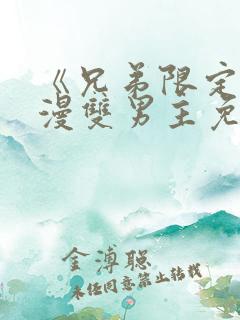 《兄弟限定
漫双男主免
金溥聪
未经同意禁止转载